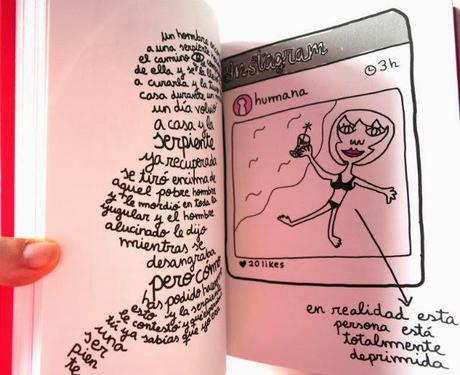 un hombre
a una serpiente
el camino
de ella y se la
a curarla y la
casa durante un
un día volvió
a casa y la
serpiente
ya recuperada
se tiró encima de
aquel pobre hombre
y le mordió en toda la
yugular y el hombre
alucinado le dijo
mientras se
desangraba
pero cómo
has podido hacer
esto y la serpiente
le contestó y qué
tú ya sabías que yo era
una
ser
pien
te
Instagram
3h
humana
20 likes
en realidad esta
persona está
totalmente
deprimida